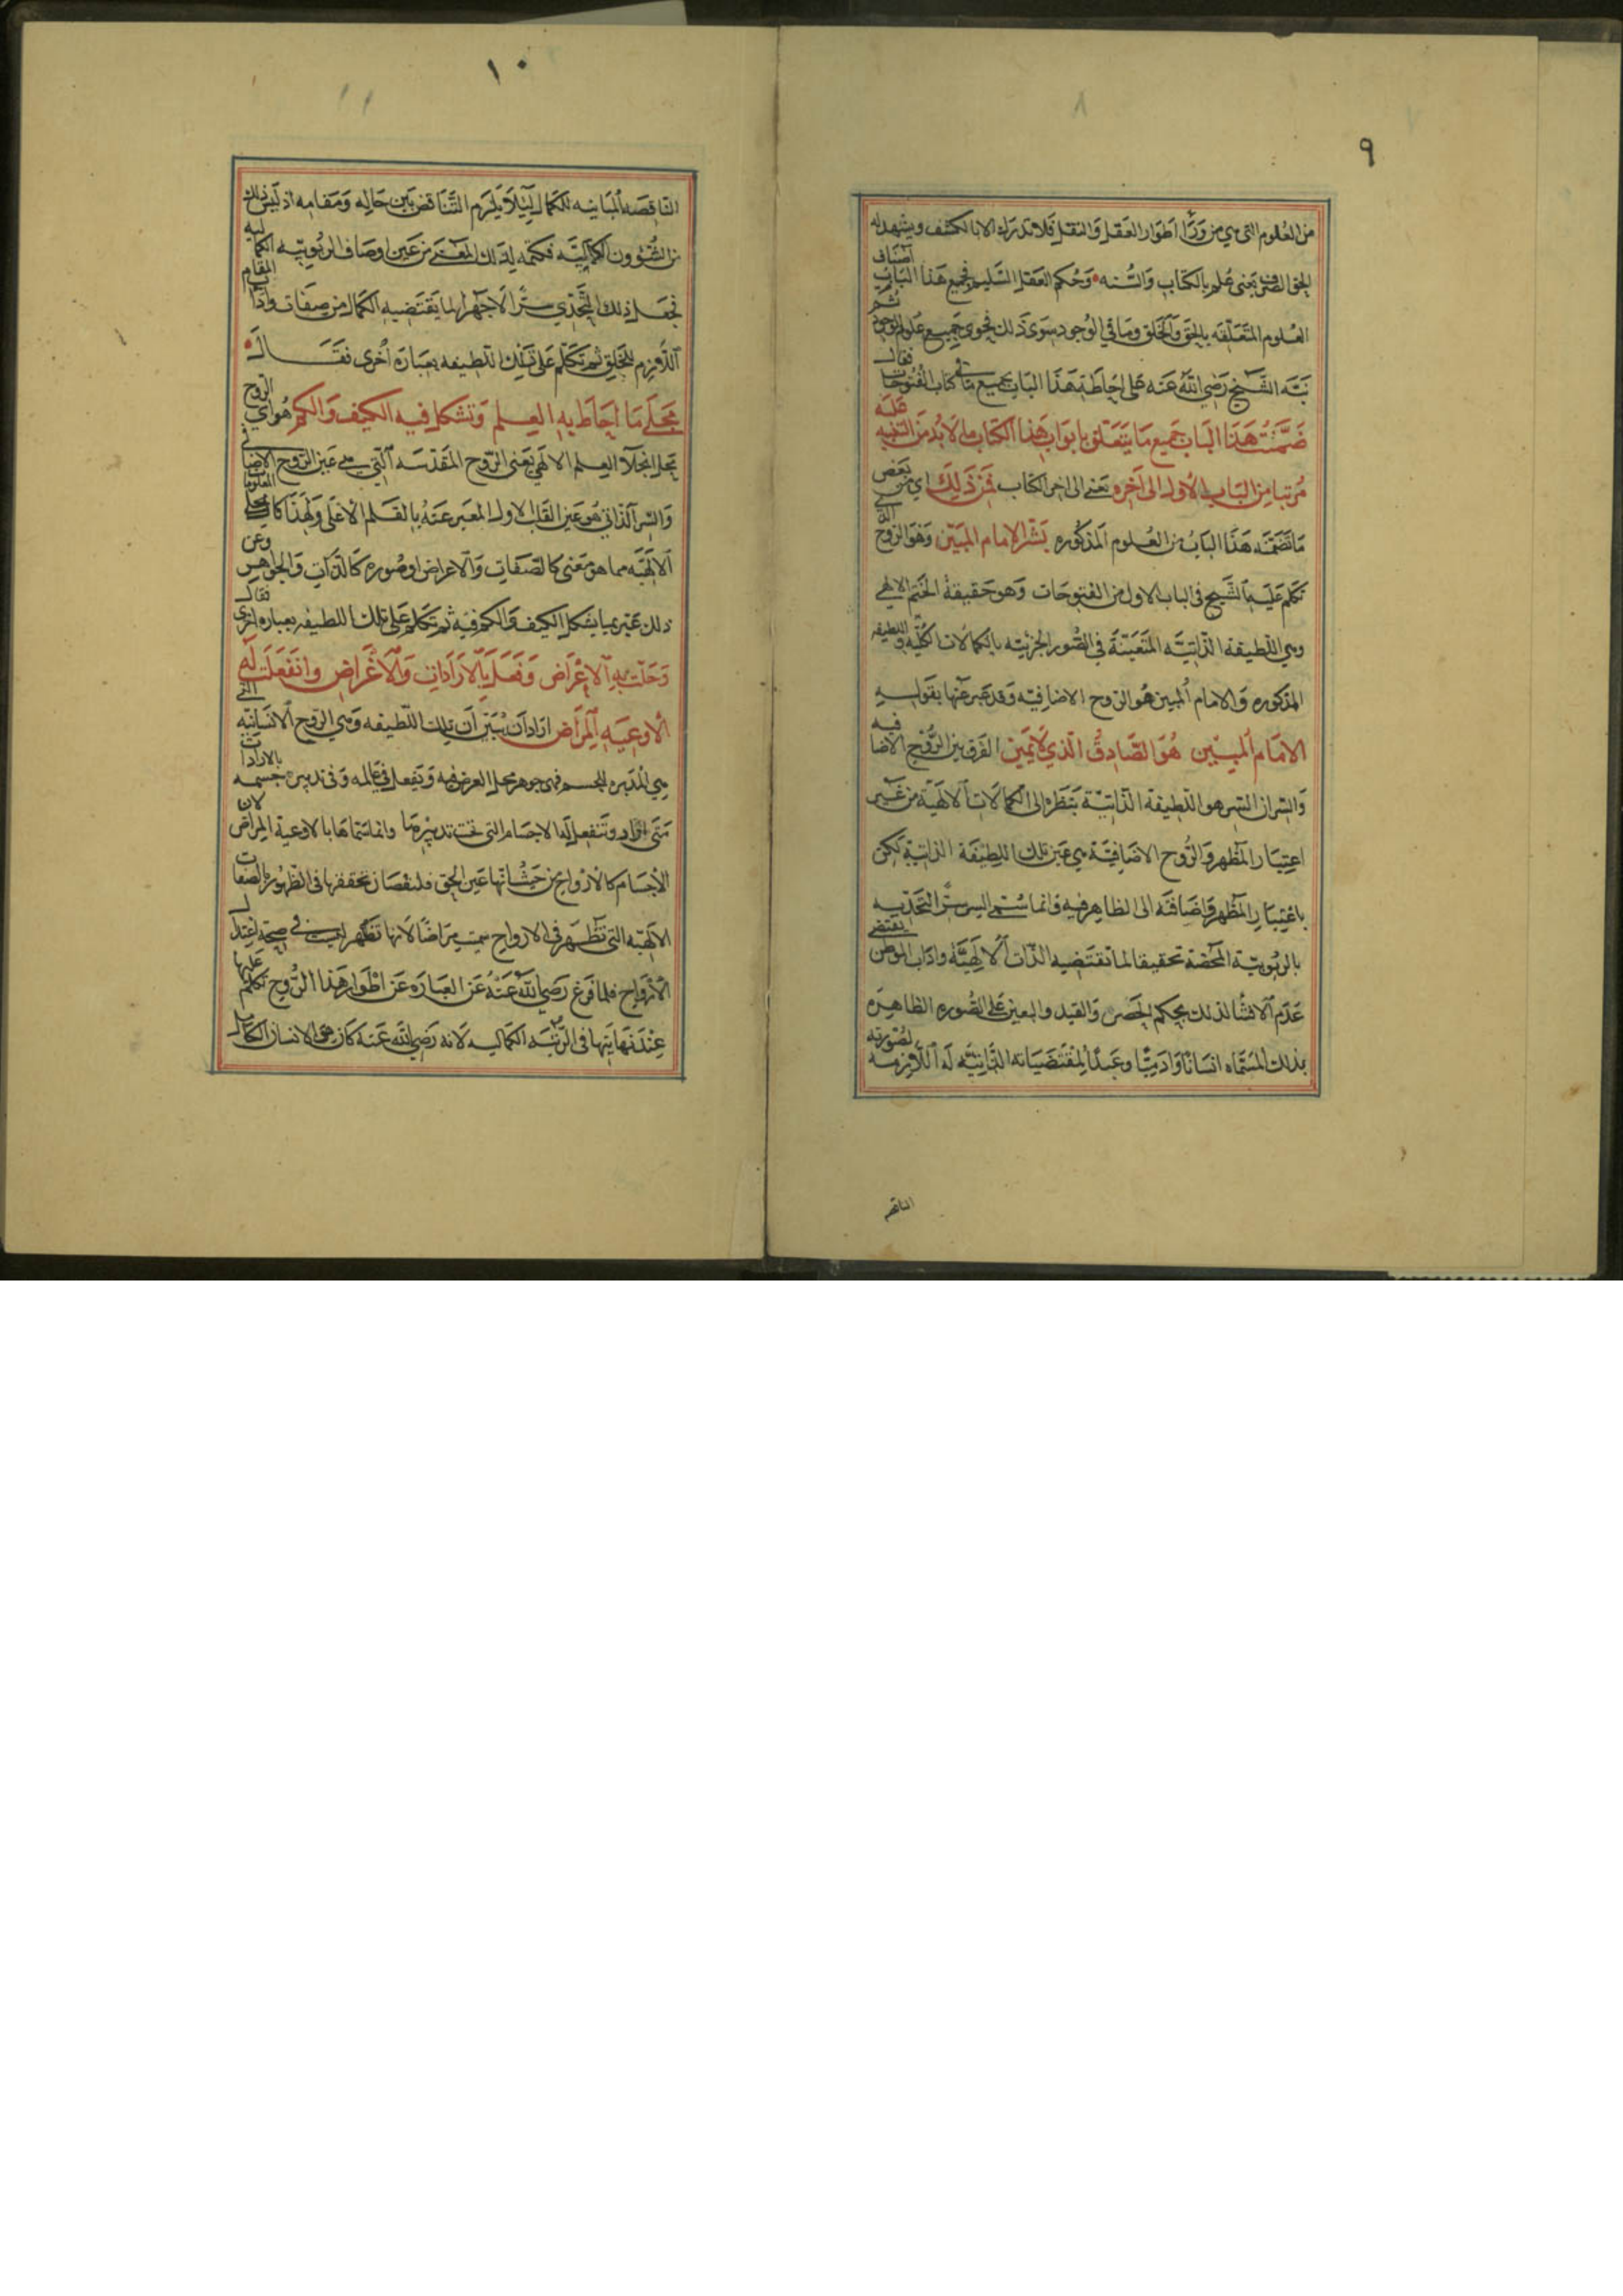 ٩
من العلوم التى هي من وَرَآ اطَوَار العَقل وَالنقل فَلا تدرَك الا بالكشف ويشهد له
الحق الصرف يَعنى عُلم بالكتاب وَالسُّنه وَحُكم العقل السّليم فجميع هَذا البَاب اَصنَاف
العُلوم المتَعَلّقه بالحَق وَالخَلق ومَا في الوُجود سِوَى ذَلك فحوى جَميع عَلوم الوجود ثم
نَبّه الشّيخ رَضيَ اللّٰه عَنه عَلى احَاطة هَذا البَاب بجميع مَا في كتاب الفُتُوحَات فقال
ضَمّنت هَذا البَاب جَميع مَا يَتعَلق بابواب هَذا الكتَاب مما لا بُد من التنبيه عَليه
مُرتبا مِن البَاب الأول الى آخره يَعنى الى اخر الكتاب فمن ذَلِكَ اي من بَعض
مَا تضمّنه هَذا البَاب من العُلوم المذكوره بسّر الامام المبَين وَهوَ الرّوح الذى
تكلم عَليه الشّيخ فى الباب الاول من الفتوحَات وَهوَ حَقيقةُ الختم الالهى
وهي اللّطيفة الذّاتيّه المتَعَيّنة في الصُّور الجزئيّه بالكمالات الكُلّيه وَاللطيفه
المذكوره وَالامام المبين هُو الرّوح الاضافيّه وَقد عَبر عَنها بقَوله
الامَام المُبيْن هُوَ الصَّادِقُ الذي لَا يمَين الفَرق بين الرُّوح الاضافيه
وَالسّر ان السّر هو اللطيفة الذّاتيّة بنَظرها الى الكمالَات الالهيّة من غَير
اعتِبَار المظهر وَالرّوح الاضَافيّة هي عَين تلك اللطِيفة الذاتيّة لكن
باعتِبَار المظهر وَاضَافته الى الظاهِر فيه وَانما سُمّى السر سرًّا لتحَدّيه
بالربُوبيّة المحضة تحقيقا لما تقتَضيه الذّات الالهيَّة واداب الموطن يقتضى
عَدَم الافشَا لذلك بحكم الحَصر وَالقيد وَالتعين عَلى الصُّوره الظاهِرَه
بذلك المسَمّاه انسَانًا وَادَميًّا وعَبدًا لمقتَضيَاته الذّاتيّه لَه اللّازمه لصُورته
الناقصه
١٠
الناقصَه المبَاينه للكمال لئلَّا يَلزم التَّنَاقض بَين حَاله وَمقامه اذ لَيسَ ذلك
من الشُّؤون الكمالِيّه فكتمه لذلك المعنَى من عَين اوصَاف الربُوبيّه الكماليه
فجعَل ذلك التَّحَدّي سِتًرا لا جَهرًا لما يَقتَضيه الكمَال من صِفات وادَاب المقام
اللّازم للخَلق ثم تكَلّم عَلى تلك اللطيفه بعبَارَه اُخرى فقَال
مجَلَى مَا احَاطَ به العِلم وَتشكل فيه الكيف وَالكم هُو اي الروح
مَجلى انجلاء العِلم الالهى يَعنى الرّوح المقَدّسَه التى هي عَين الرّوح الاضَافى
وَالسّر الذّاتى هُو عَين القَلب الاول المعَبر عَنهُ بالقَلم الأعلى وَلهَذا كان مجلى المعلومات
الالهَيّه مما هو مَعنى كالصّفَات وَالاعراض او صُوره كالذّوات وَالجوَاهِر وعن
ذلك عَبّر بما يشكل الكيف وَالكم فيه ثم تكلم عَلى تلك اللطيفه بعباره اخرى فقال
وَحَلّت به الاعْرَاض وَفعَل بالارَادات وَالاغْرَاض وانفَعَلَت لَه
الاوعيَه المرَاض ارَاد اَن يُبَيّن اَن تلك اللّطيفه وَهي الرّوح الانسَانيّه التى
هي المُدَبره للجسم فهى جوهر محل العرض فيه وَتفعل فى عَالمه وَفى تدبير جسمه بالارادات
مَتى اراد وَتنفعل لها الاجسَام التى تحت تدبيْرها وانما سَمّاهَا بالاوعية المراض لان
الأجسَام كالارْوَاح من حَيْثُ انها عَين الحق فلنقصَان تحققها فى الظهُور بالصفات
الالهيّه التى تَظهر فى الارواح سمّيت مِرَاضًا لانها تَظهر ليست فى صِحة اعتدال
الأرْوَاح فلما فَرغ رَضيَ اللّٰه عَنهُ عَن العبَارَه عَن اطْوَار هَذا الرُّوح تكلم عليها
عِنْدَ نهَايَتها فى الرّتبَه الكمَاليه لانه رَضى اللّٰه عَنه كان هو الانسان الكامل